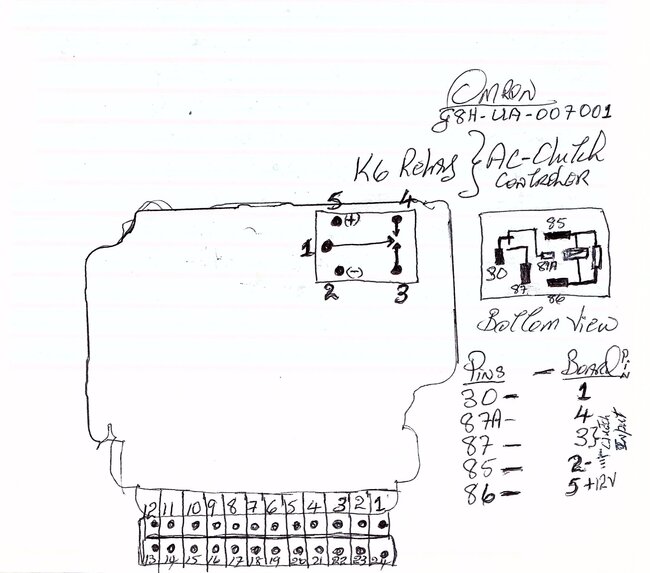 OMRON
G8H-UA-007001
K6 Relay } AC-Clutch
CONTROLER
5 (+) 4
1
(-)
2 3
85
30 87A
87
86
Bottom View
PINS - Board PIN
30 - 1
87A - 4
87 - 3 } Clutch Input
85 - 2 -
86 - 5 +12V
12 11 10 9 8 7 6 5 4 3 2 1
13 14 15 16 17 18 19 20 21 22 23 24